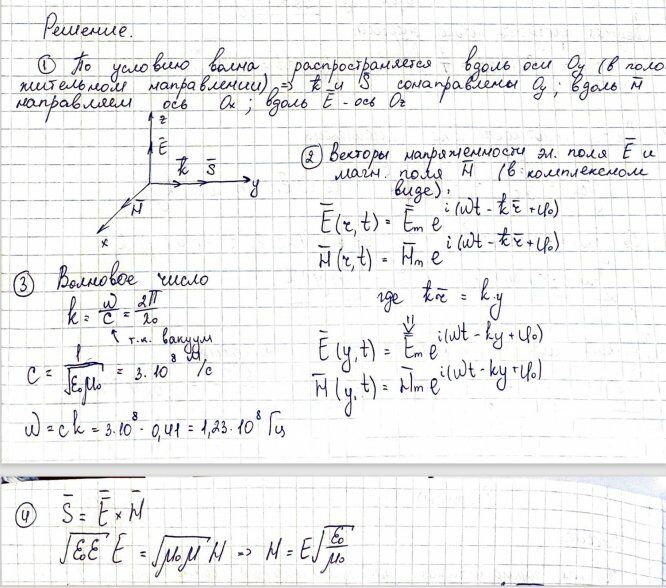 Решение.
① По условию волна распространяется вдоль оси Oy (в поло
жительном направлении) => k̄ и S̄ сонаправлены Oy; вдоль H̄
направляем ось Ox; вдоль Ē - ось Oz
z
Ē
k̄ S̄
y
H̄
x
② Векторы напряженности эл. поля Ē и
магн. поля H̄ (в комплексном
виде):
Ē(r,t) = Ēm e^i(ωt - k̄r̄ + φ₀)
H̄(r,t) = H̄m e^i(ωt - k̄r̄ + φ₀)
где k̄r̄ = k·y
⇓
Ē(y,t) = Ēm e^i(ωt - ky + φ₀)
H̄(y,t) = H̄m e^i(ωt - ky + φ₀)
③ Волновое число
k = ω/c = 2π/λ₀
↖ т.к. вакуум
c = 1/√(ε₀μ₀) = 3·10⁸ м/с
ω = ck = 3·10⁸ · 0,41 = 1,23·10⁸ Гц
④ S̄ = Ē × H̄
√(ε₀ε) E = √(μ₀μ) H => H = E√(ε₀/μ₀)